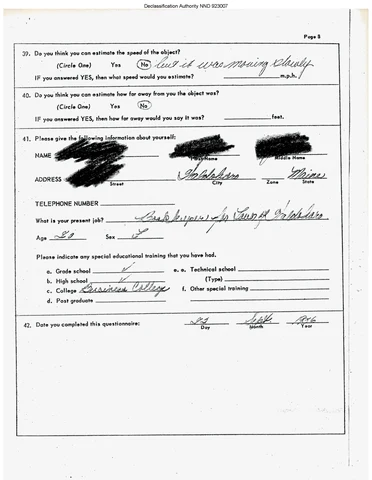 Declassification Authority NND 923007
Page 8
39. Do you think you can estimate the speed of the object?
(Circle One) Yes No but it was moving slowly
IF you answered YES, then what speed would you estimate? m.p.h.
40. Do you think you can estimate how far away from you the object was?
(Circle One) Yes No
IF you answered YES, then how far away would you say it was? feet.
41. Please give the following information about yourself:
NAME
Middle Name
ADDRESS Maine
Street City Zone State
TELEPHONE NUMBER
What is your present job? Bookkeeper for Town of
Age Sex F
Please indicate any special educational training that you have had.
a. Grade school ✓ e. Technical school
b. High school ✓ (Type)
c. College Business College f. Other special training
d. Post graduate
42. Date you completed this questionnaire: Sept
Day Month Year